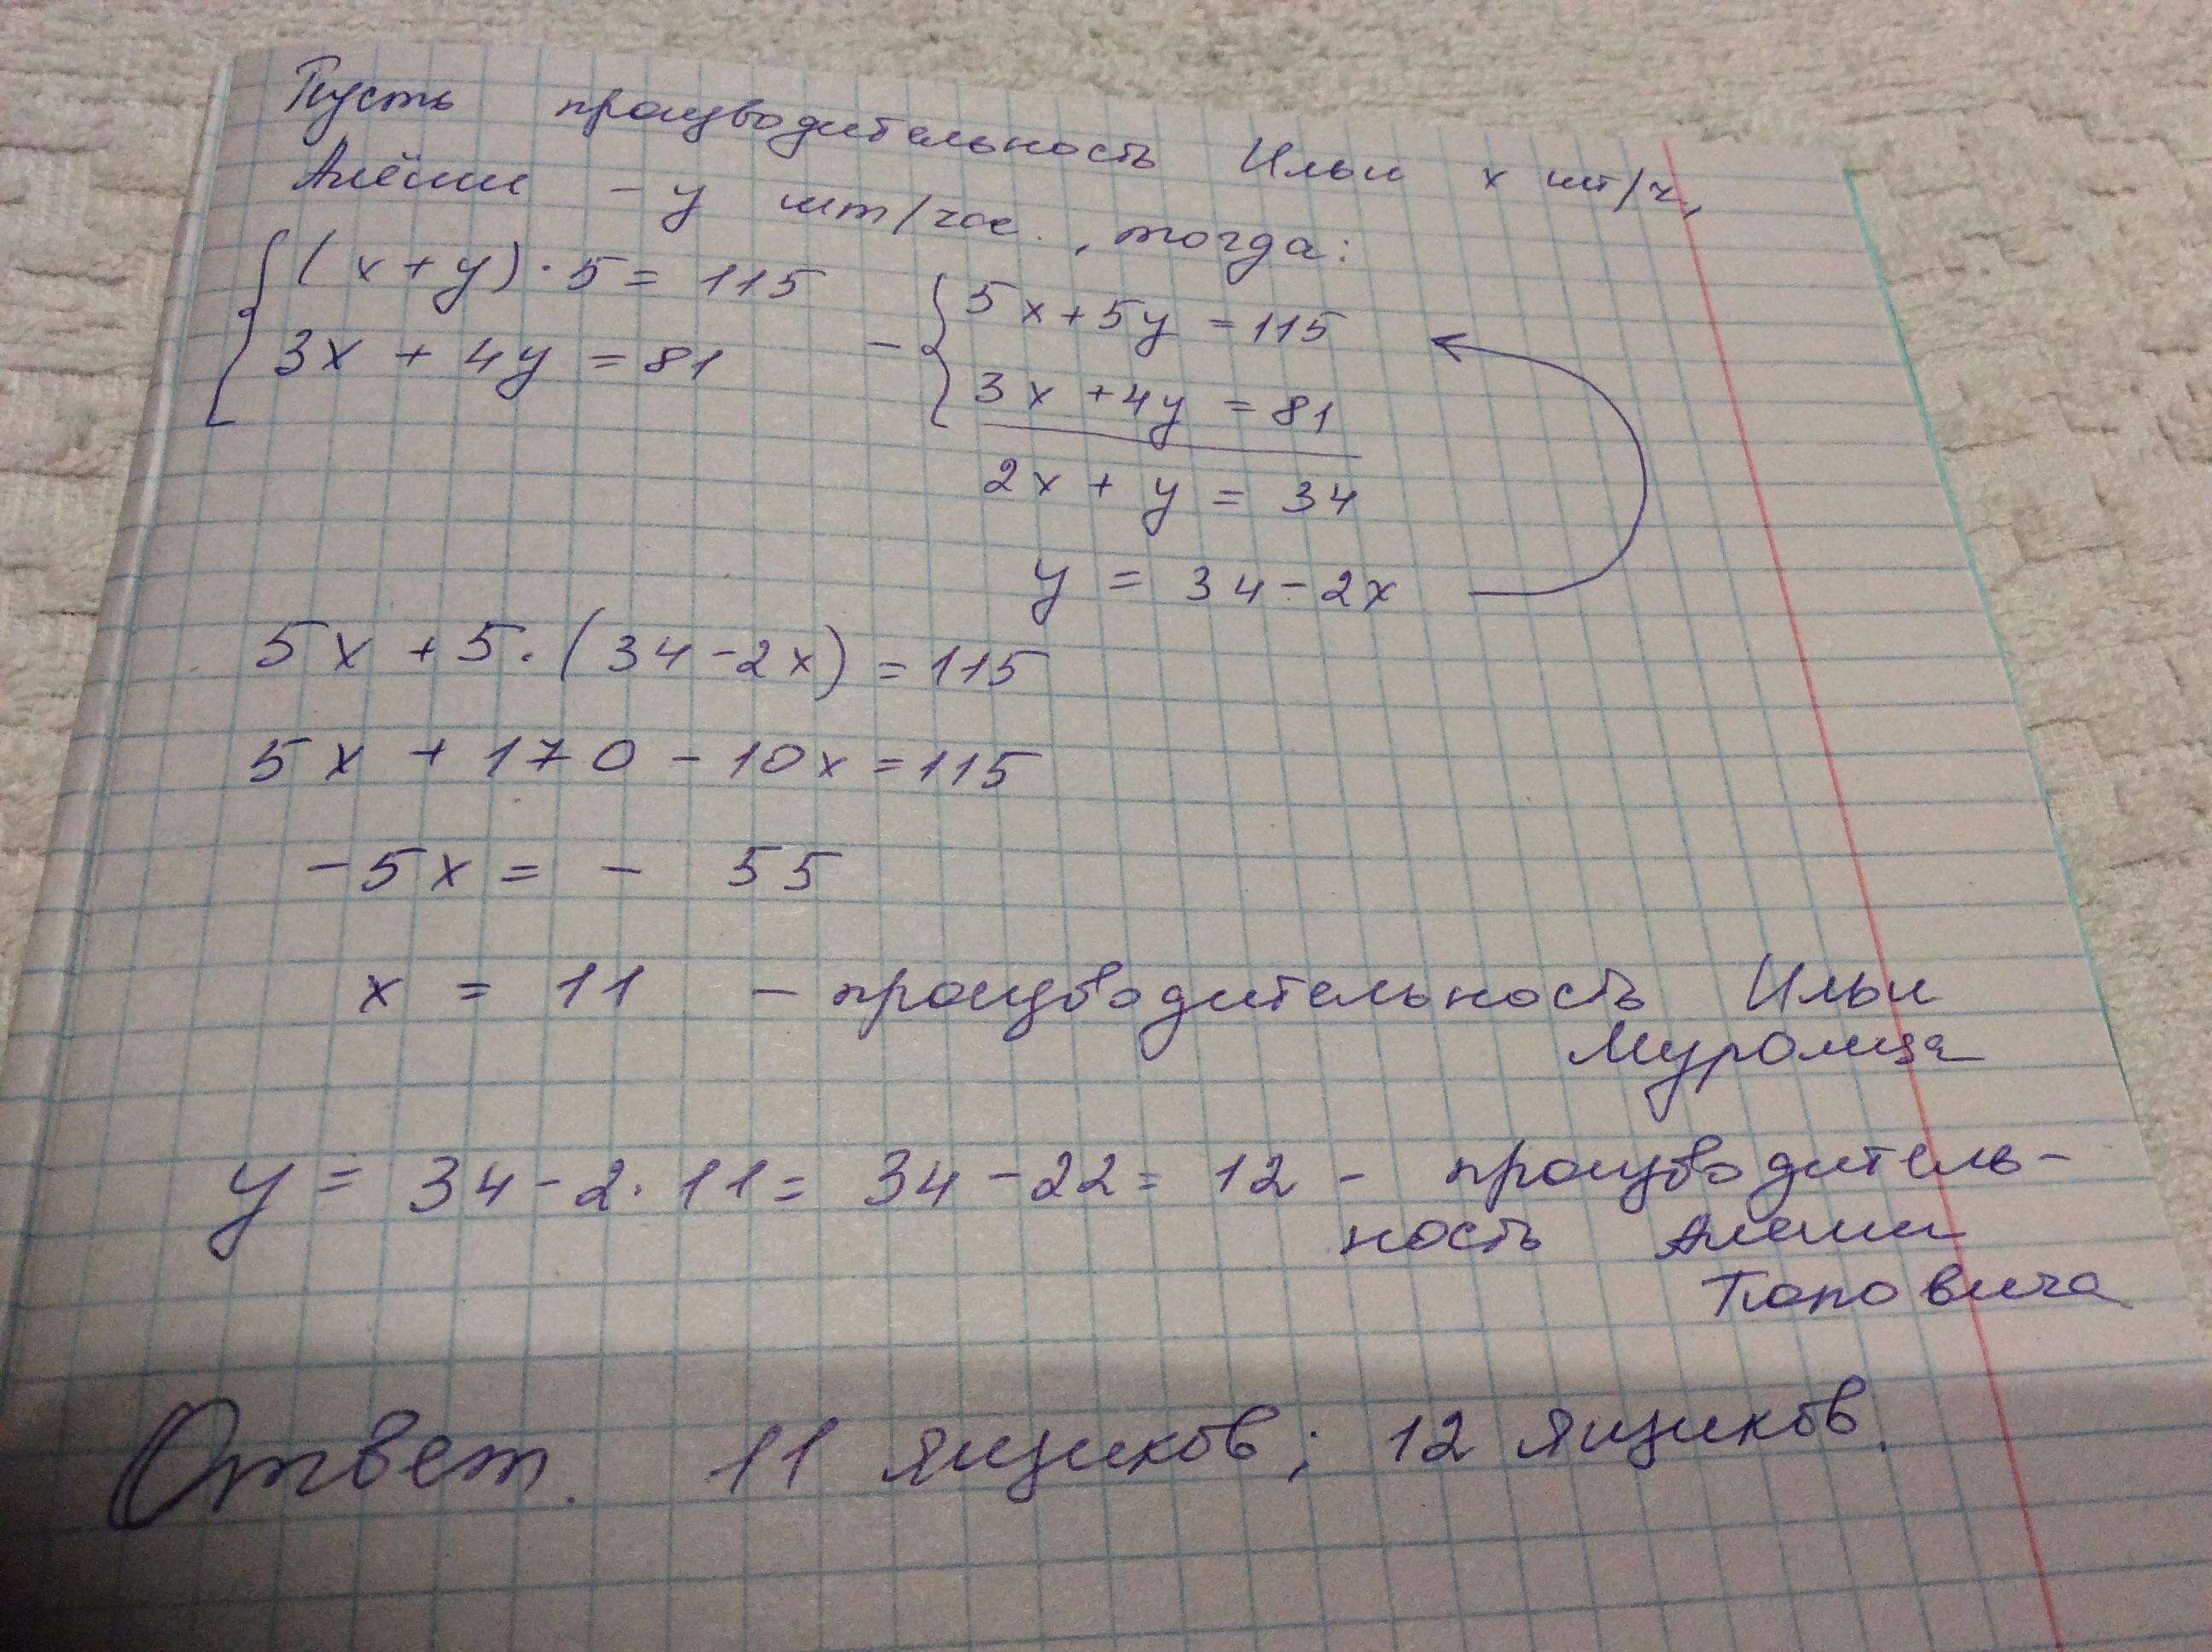 Пусть производительность Ильи x шт/ч,
Алёши – y шт/час., тогда:
(x+y)·5=115
3x + 4y = 81
– 5x+5y=115
3x+4y=81
2x + y = 34
y = 34-2x
5x + 5·(34-2x) = 115
5x + 170 - 10x = 115
-5x = - 55
x = 11 – производительность Ильи
Муромца
y = 34-2·11 = 34-22 = 12 - производитель-
ность Алеши
Поповича
Ответ. 11 ящиков; 12 ящиков.